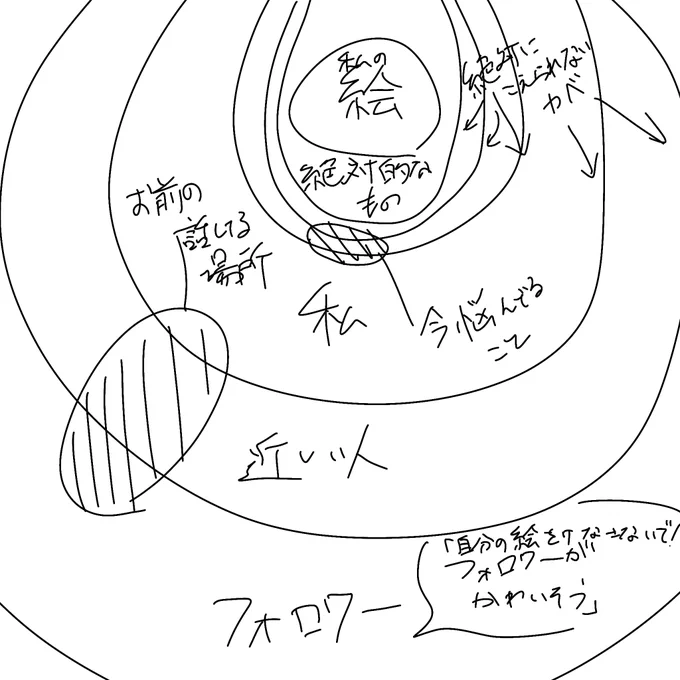 私の
絵
絶対に
こえられない
カベ
絶対的な
もの
お前の
話してる
場所
私
今悩んでる
こと
近しい人
フォロワー
「自分の絵をけなさないで！
フォロワーが
かわいそう」